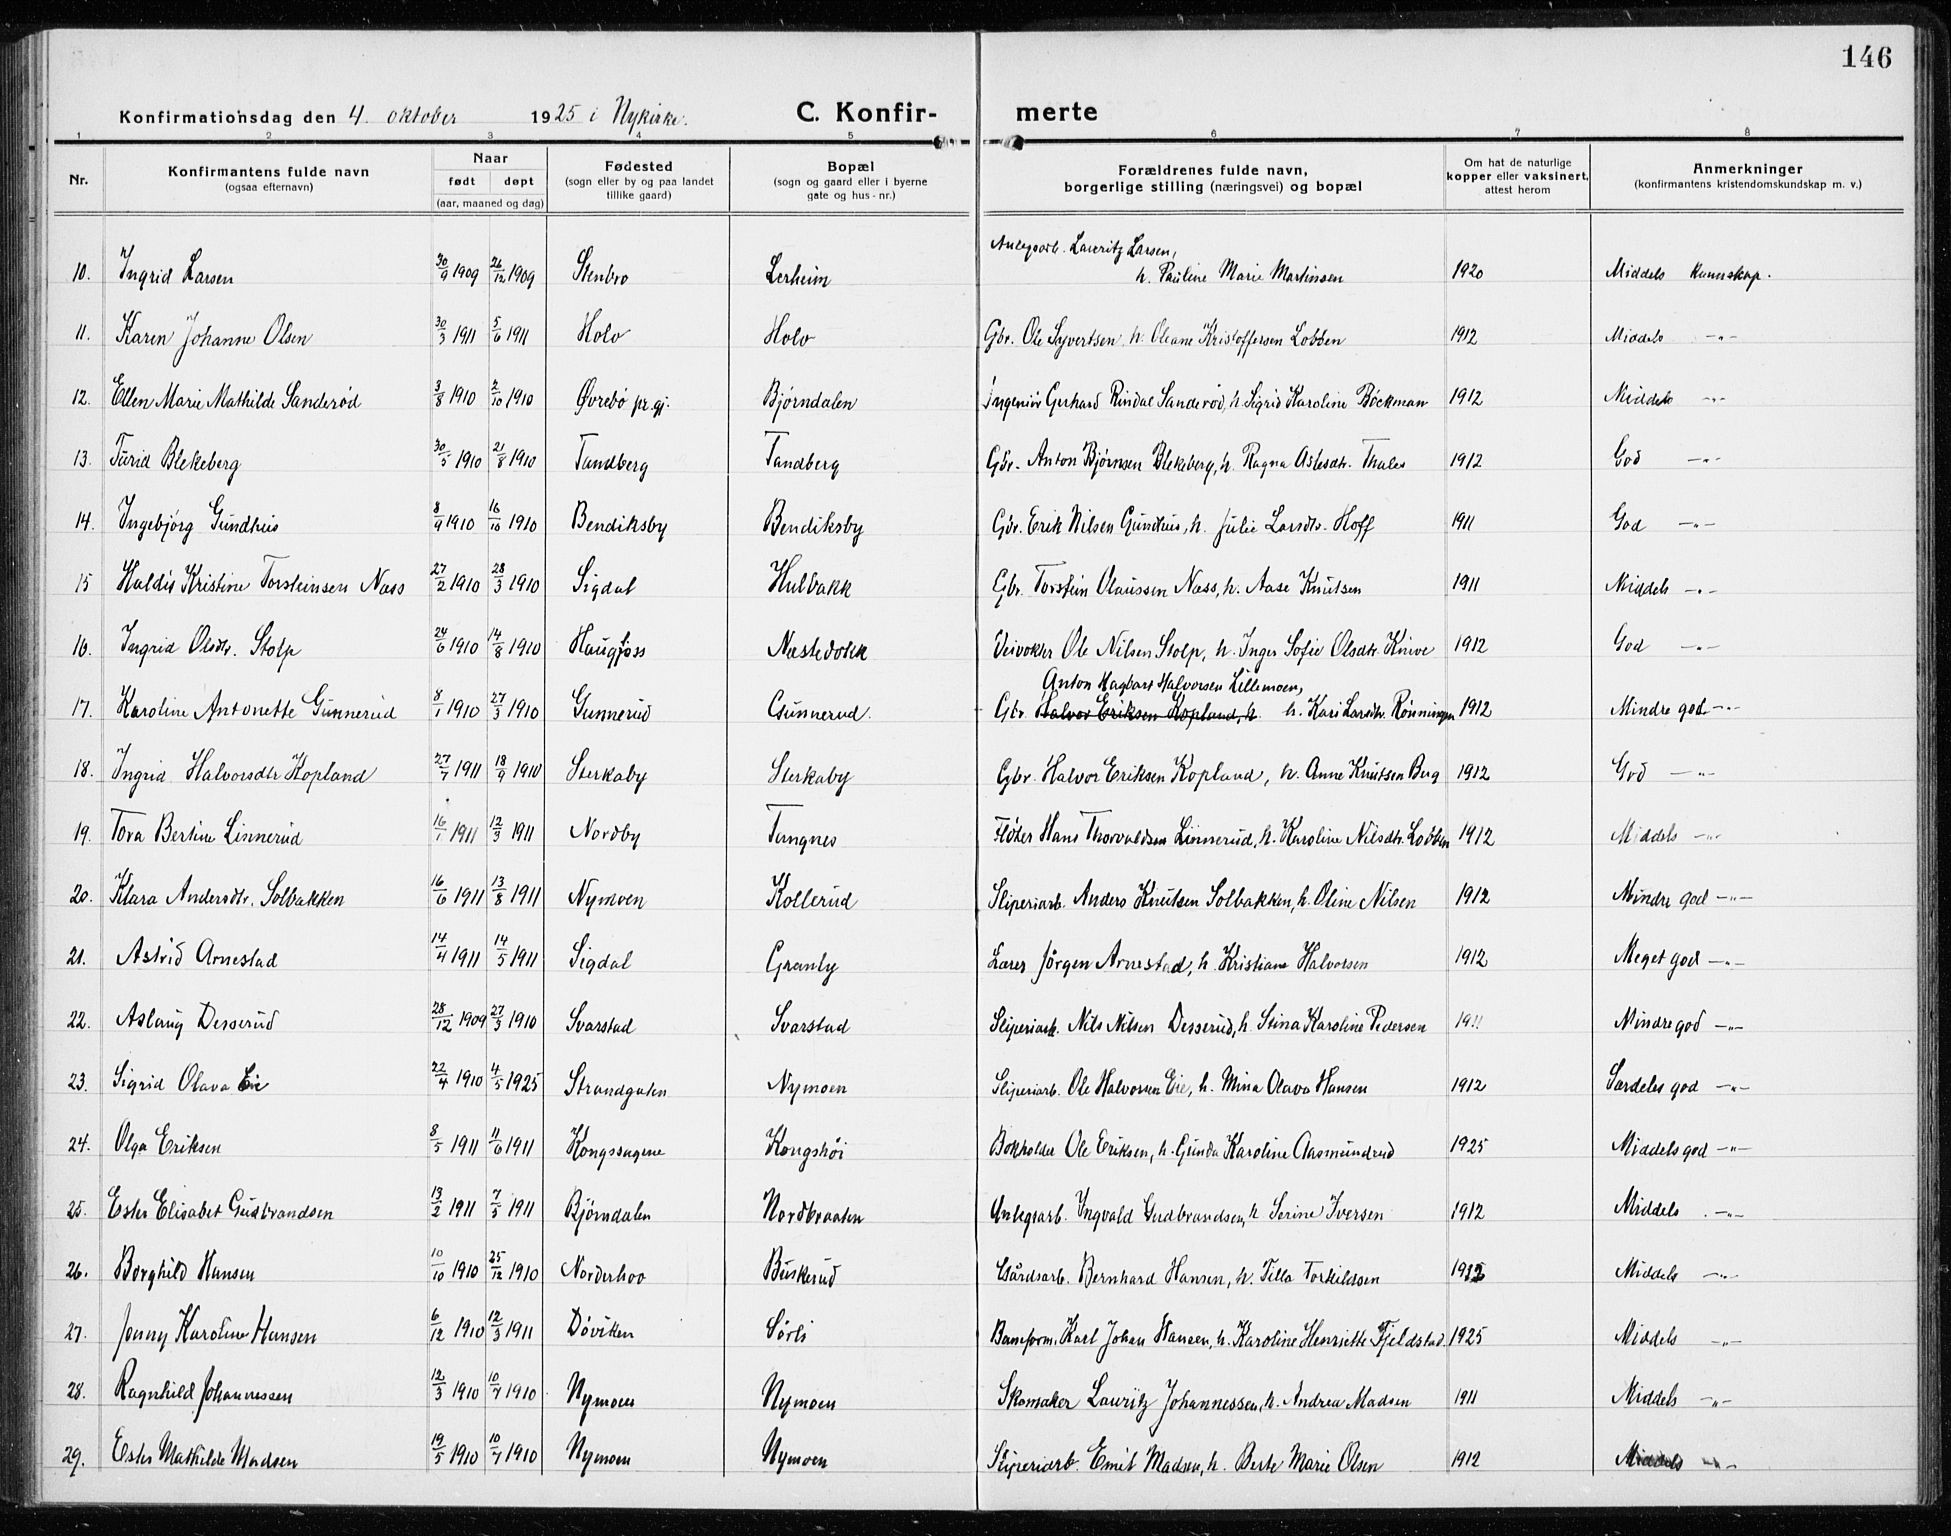 146
Konfirmationsdag den 4. oktober 1925 i Nykirke. C. Konfir- merte
1 2 3 4 5 6 7 8
Nr. Konfirmantens fulde navn (ogsaa efternavn) Naar født døpt (aar, maaned og dag) Fødested (sogn eller by og paa landet tillike gaard) Bopæl (sogn og gaard eller i byerne gate og hus-nr.) Forældrenes fulde navn, borgerlige stilling (næringsvei) og bopæl Om hat de naturlige kopper eller vaksinert, attest herom Anmerkninger (konfirmantens kristendomskundskap m. v.)
Anlegsarb. Lauritz Larsen,
10. Ingrid Larsen 30/9 1909 26/12 1909 Stenbro Lerheim h. Pauline Marie Martinsen 1920 Middels kunnskap.
11. Karen Johanne Olsen 30/3 1911 5/6 1911 Holo Holo Gbr. Ole Syvertsen, h. Oleane Kristoffersen Lobben 1912 Middels -"-
12. Ellen Marie Mathilde Sanderød 3/8 1910 2/10 1910 Øvrebö pr.gj. Bjørndalen Ingeniör Gerhard Rindal Sanderöd, h. Sigrid Karoline Böckman 1912 Middels -"-
13. Turid Blekeberg 30/5 1910 21/8 1910 Tandberg Tandberg Gbr. Anton Bjørnsen Blekeberg, h. Ragna Aslesdtr. Thales 1912 God -"-
14. Ingebjörg Gundhus 8/9 1910 16/10 1910 Bendiksby Bendiksby Gbr. Erik Nilsen Gundhus, h. Julie Larsdtr. Hoff 1911 God -"-
15 Haldis Kristine Torsteinsen Næss 27/2 1910 28/3 1910 Sigdal Hulbakk Gbr. Torstein Olaussen Næss, h. Aase Knutsen 1911 Middels -"-
16. Ingrid Olsdtr. Stolp 24/6 1910 14/8 1910 Haugfoss Næstedokk Veivokter Ole Nilsen Stolp, h. Inger Sofie Olsdtr. Knive 1912 God -"-
Anton Hagbart Halvorsen Lillemoen,
17. Karoline Antonette Gunnerud 8/1 1910 27/3 1910 Gunnerud Gunnerud. Gbr. Halvor Eriksen Kopland, h. h. Kari Larsdtr. Rönningen 1912 Mindre god -"-
18. Ingrid Halvorsdtr Kopland 27/7 1911 18/9 1910 Sterkaby Sterkaby Gbr. Halvor Eriksen Kopland, h. Anne Knutsen Berg 1912 God -"-
19. Tora Bertine Linnerud 16/1 1911 12/3 1911 Nordby Tangnes Fløter Hans Thorvaldsen Linnerud, h. Karoline Nilsdtr. Lobben 1912 Middels -"-
20. Klara Andersdtr. Solbakken 16/6 1911 13/8 1911 Nymoen Kollerud Sliperiarb. Anders Knutsen Solbakken, h. Oline Nilsen 1912 Mindre god -"-
21. Astrid Arnestad 14/4 1911 14/5 1911 Sigdal Granly Lærer Jörgen Arnestad, h. Kristiane Halvorsen 1912 Meget god -"-
22. Aslaug Desserud 28/12 1909 27/3 1910 Svarstad Svarstad Sliperiarb. Nils Nilsen Desserud, h. Stina Karoline Pedersen 1911 Mindre god -"-
23. Sigrid Olava Eie 22/4 1910 4/5 1925 Strandgaten Nymoen Sliperiarb. Ole Halvorsen Eie, h. Mina Olava Hansen 1912 Særdeles god -"-
24. Olga Eriksen 8/5 1911 11/6 1911 Kongssagene Kongshöi Bokholder Ole Eriksen, h. Gunda Karoline Aasmundrud 1925 Middels god -"-
25. Ester Elisabet Gudbrandsen 13/2 1911 7/5 1911 Bjørndalen Nordbraaten Anlegsarb. Ingvald Gudbrandsen, h Serine Iversen 1912 Middels -"-
26. Borghild Hansen 10/10 1910 25/12 1910 Norderhov Buskerud Gårdsarb. Bernhard Hansen, h. Tilla Torkildsen 1912 Middels -"-
27. Jenny Karoline Hansen 6/12 1910 12/3 1911 Döviken Sörli Baneform. Karl Johan Hansen, h. Karoline Henriette Fjeldstad. 1925 Middels -"-
28. Ragnhild Johannessen 12/3 1910 10/7 1910 Nymoen Nymoen Skomaker Lauritz Johannessen, h. Andrea Madsen 1911 Middels -"-
29. Ester Mathilde Madsen 19/5 1910 10/7 1910 Nymoen Nymoen Sliperiarb. Emil Madsen, h. Berte Marie Olsen 1912 Middels -"-